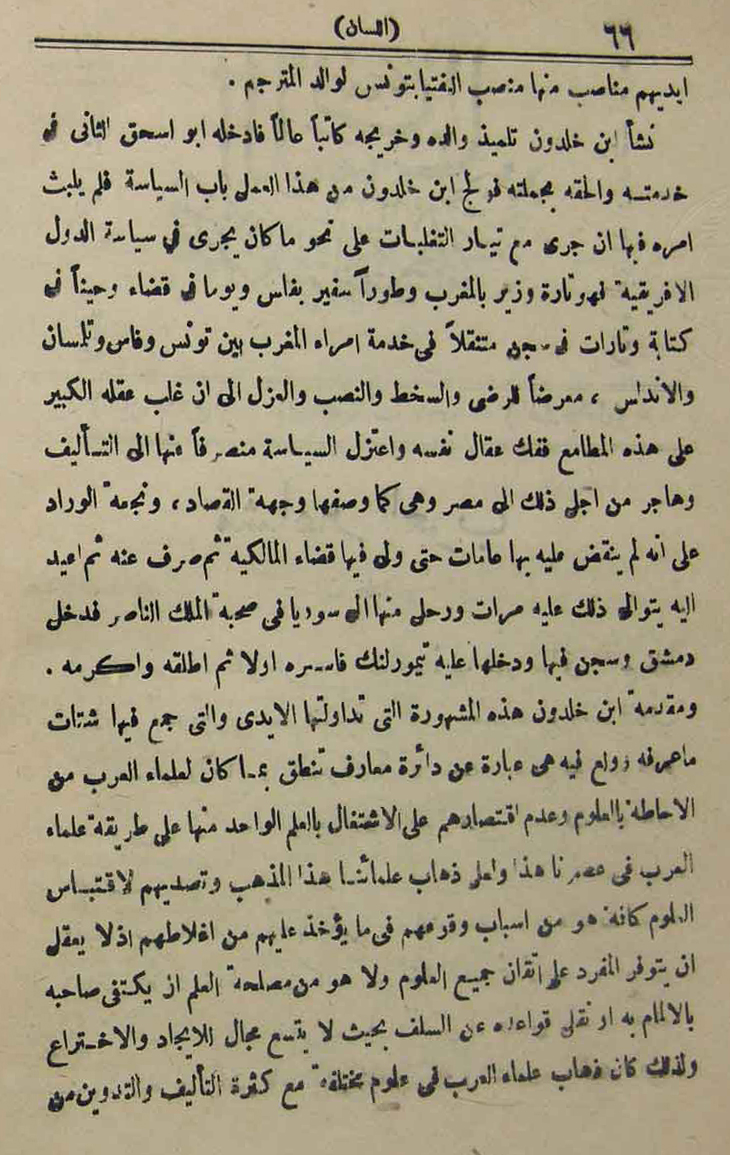 ٦٦ (اللسان)
ايديهم مناصب منها منصب الفتيا بتونس لوالد المترجم .
نشأ ابن خلدون تلميذ والده وخريجه كاتباً عالماً فادخله ابو اسحق الثانى فى
خدمته والحقه بجملته فولج ابن خلدون من هذا العمل باب السياسة فلم يلبث
امره فيها ان جرى مع تيار التقلبات على نحو ما كان يجرى في سياسة الدول
الافريقية فهو تارة وزير بالمغرب وطوراً سفير بفاس ويوما فى قضاء وحيناً فى
كتابة وتارات فى سجن متنقلاً فى خدمة امراء المغرب بين تونس وفاس وتلمسان
والاندلس ، معرضاً للرضى والسخط والنصب والعزل الى ان غلب عقله الكبير
على هذه المطامع ففك عقال نفسه واعتزل السياسة منصرفاً منها الى التأليف
وهاجر من اجل ذلك الى مصر وهى كما وصفها وجهة القصاد ، ونجعة الوراد
على انه لم ينقض عليه بها عامات حتى ولى فيها قضاء المالكية ثم صرف عنه ثم اعيد
اليه يتوالى ذلك عليه مرات ورحل منها الى سوريا فى صحبة الملك الناصر فدخل
دمشق وسجن فيها ودخلها عليه تيمورلنك فاسره اولا ثم اطلقه واكرمه .
ومقدمة ابن خلدون هذه المشهورة التى تداولتها الايدى والتى جمع فيها شتات
ما عرفه وولع فيه هى عبارة عن دائرة معارف تنطق بما كان لعلماء العرب من
الاحاطة بالعلوم وعدم اقتصارهم على الاشتغال بالعلم الواحد منها على طريقة علماء
العرب فى عصرنا هذا ولعل ذهاب علمائنا هذا المذهب وتصديهم لاقتباس
العلوم كافة هو من اسباب وقوعهم فى ما يؤخذ عليهم من اغلاطهم اذ لا يعقل
ان يتوفر المفرد على اتقان جميع العلوم ولا هو من مصلحة العلم ان يكتفى صاحبه
بالالمام به او نقل قواعده عن السلف بحيث لا يتسع مجال للايجاد والاختراع
ولذلك كان ذهاب علماء العرب فى علوم مختلفة مع كثرة التأليف والتدوين من